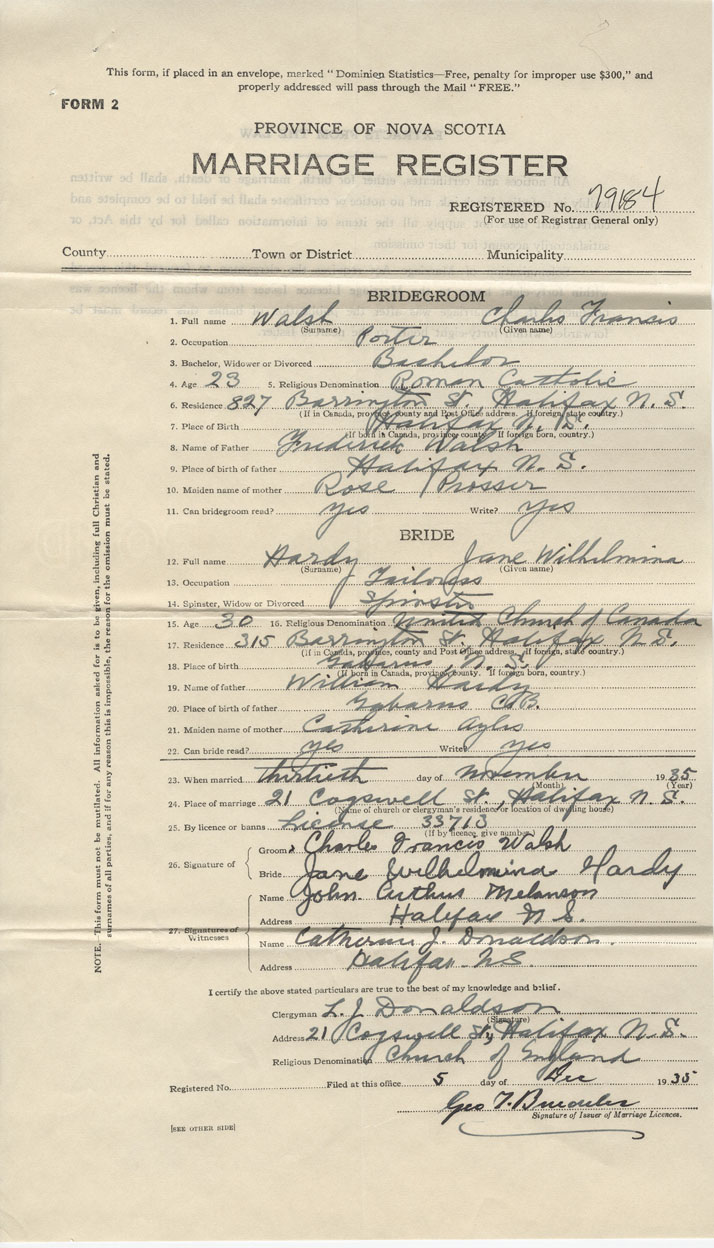 This form, if placed in an envelope, marked "Dominion Statistics—Free, penalty for improper use $300," and
properly addressed will pass through the Mail "FREE."
FORM 2
PROVINCE OF NOVA SCOTIA
MARRIAGE REGISTER
REGISTERED No. 79184
(For use of Registrar General only)
County Town or District Municipality
BRIDEGROOM
1. Full name Walsh Charles Francis
(Surname) (Given name)
2. Occupation Porter
3. Bachelor, Widower or Divorced Bachelor
4. Age 23 5. Religious Denomination Roman Catholic
6. Residence 827 Barrington St., Halifax N. S.
(If in Canada, province, county and Post Office address. If foreign, state country.)
7. Place of Birth Halifax N. S.
(If born in Canada, province, county. If foreign born, country.)
8. Name of Father Frederick Walsh
9. Place of birth of father Halifax N. S.
10. Maiden name of mother Rose Prosser
11. Can bridegroom read? yes Write? yes
BRIDE
12. Full name Hardy Jane Wilhelmina
(Surname) (Given name)
13. Occupation Tailoress
14. Spinster, Widow or Divorced Spinster
15. Age 30 16. Religious Denomination United Church of Canada
17. Residence 315 Barrington St. Halifax N. S.
(If in Canada, province, county and Post Office address. If foreign, state country.)
18. Place of birth Gabarus, N. S.
(If born in Canada, province, county. If foreign born, country.)
19. Name of father William Hardy
20. Place of birth of father Gabarus C.B.
21. Maiden name of mother Catherine
22. Can bride read? yes Write? yes
23. When married thirtieth day of November 1935
(Month) (Year)
24. Place of marriage 21 Cogswell St., Halifax N. S.
(Name of church or clergyman's residence or location of dwelling house)
25. By licence or banns License 33713
(If by licence, give number)
26. Signature of
Groom Charles Francis Walsh
Bride Jane Wilhelmina Hardy
27. Signatures of Witnesses
Name John Arthur Melanson
Address Halifax N. S.
Name Catherine J. Donaldson.
Address Halifax NS
I certify the above stated particulars are true to the best of my knowledge and belief.
Clergyman L. J. Donaldson
(Signature)
Address 21 Cogswell St., Halifax N. S.
Religious Denomination Church of England
Registered No. Filed at this office 5 day of Dec 1935
Geo T.
Signature of Issuer of Marriage Licences.
[SEE OTHER SIDE]
NOTE. This form must not be mutilated. All information asked for is to be given, including full Christian and
surnames of all parties, and if for any reason this is impossible, the reason for the omission must be stated.